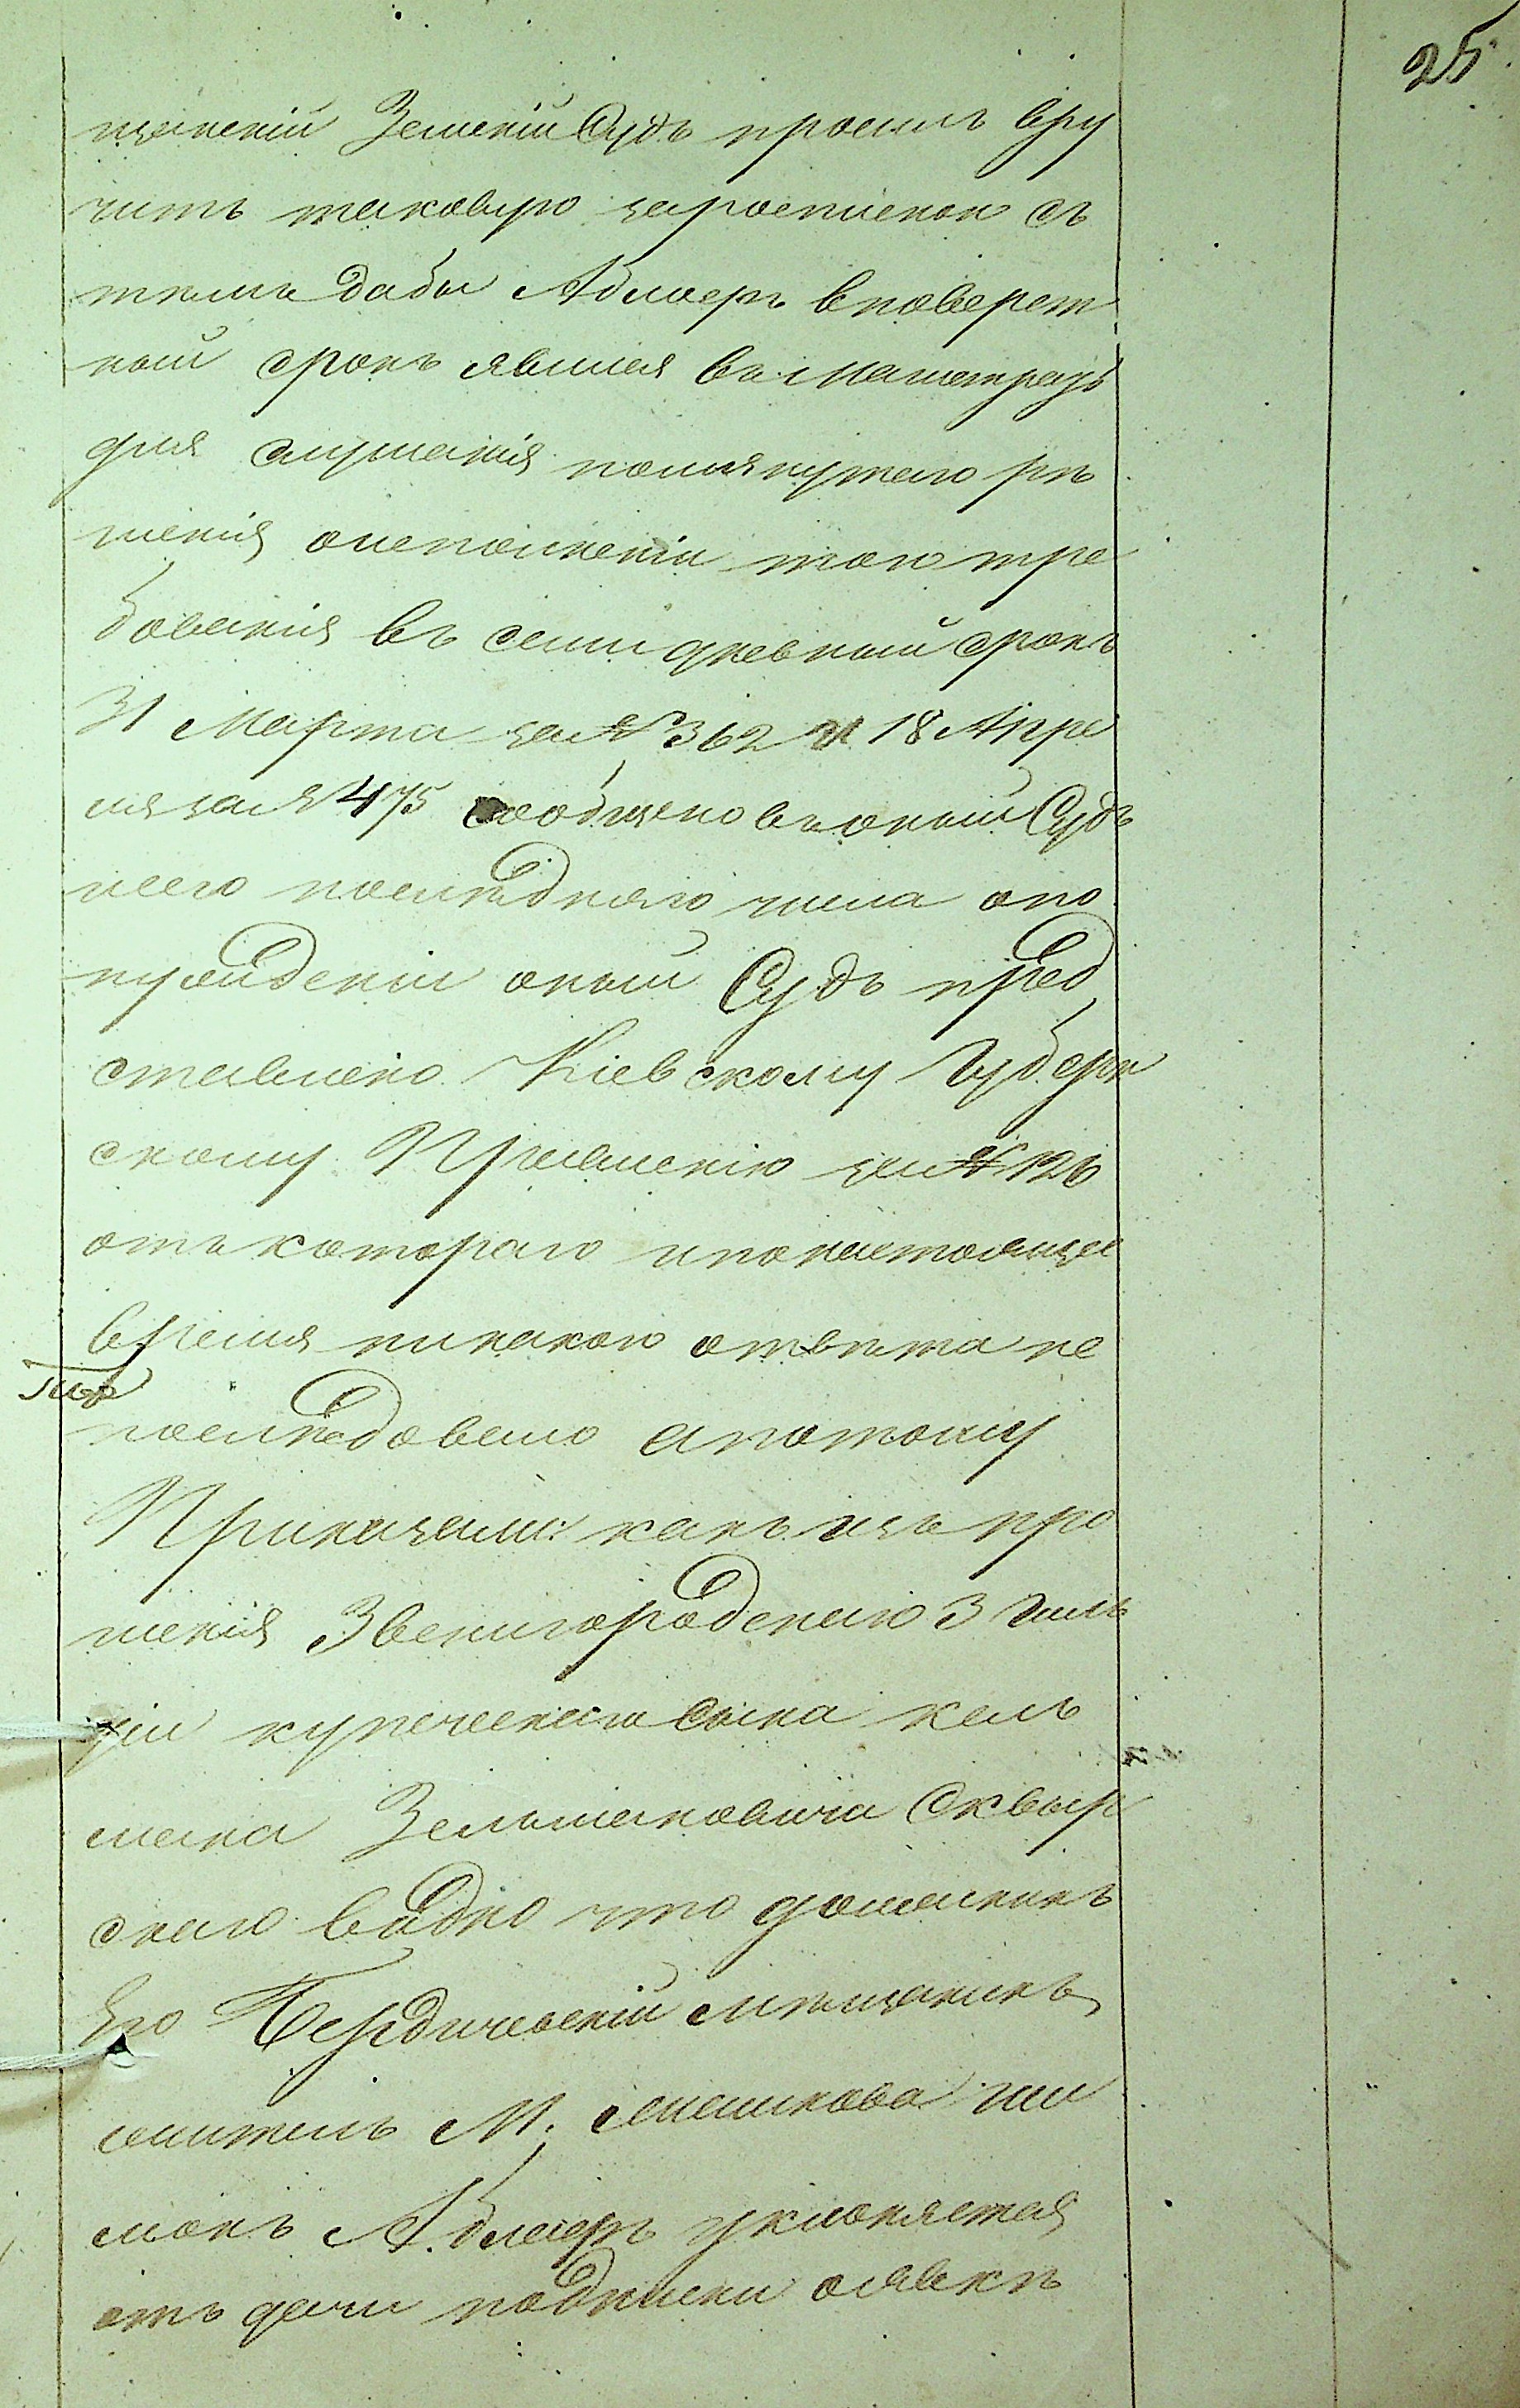 25
щанскій Земскій Судъ просилъ вру
чить таковую зароспискою съ
тѣмъ дабы Аблоеръ вповерет
ный срокъ явился въ Магистратъ
для слушанія помянутаго рѣ
шенія онеполненіи того тре
бованія въ семи дневный срокъ
31 Марта за № 362 и 18 Апре
ля за № 475 сообщено въ оный Судъ
исего послѣдняго числа опо
нужденіи оный Судъ пред
ставлено Кіевскому Губерн
скому Правленію за № 126
отъ котораго ипонастоящее
время никакого отвѣта не
послѣдовало апотому
Приказали: какъ изъ про
шенія Звенигородскаго 3 Гиль
діи купеческаго Сына Кель
мана Зельмановича Сквыр
скаго видно что должникъ
Его Бердичевскій мѣщанинъ
житель М. Ши
мокъ Аблаеръ уклоняется
отъ дачи подписки оявкѣ